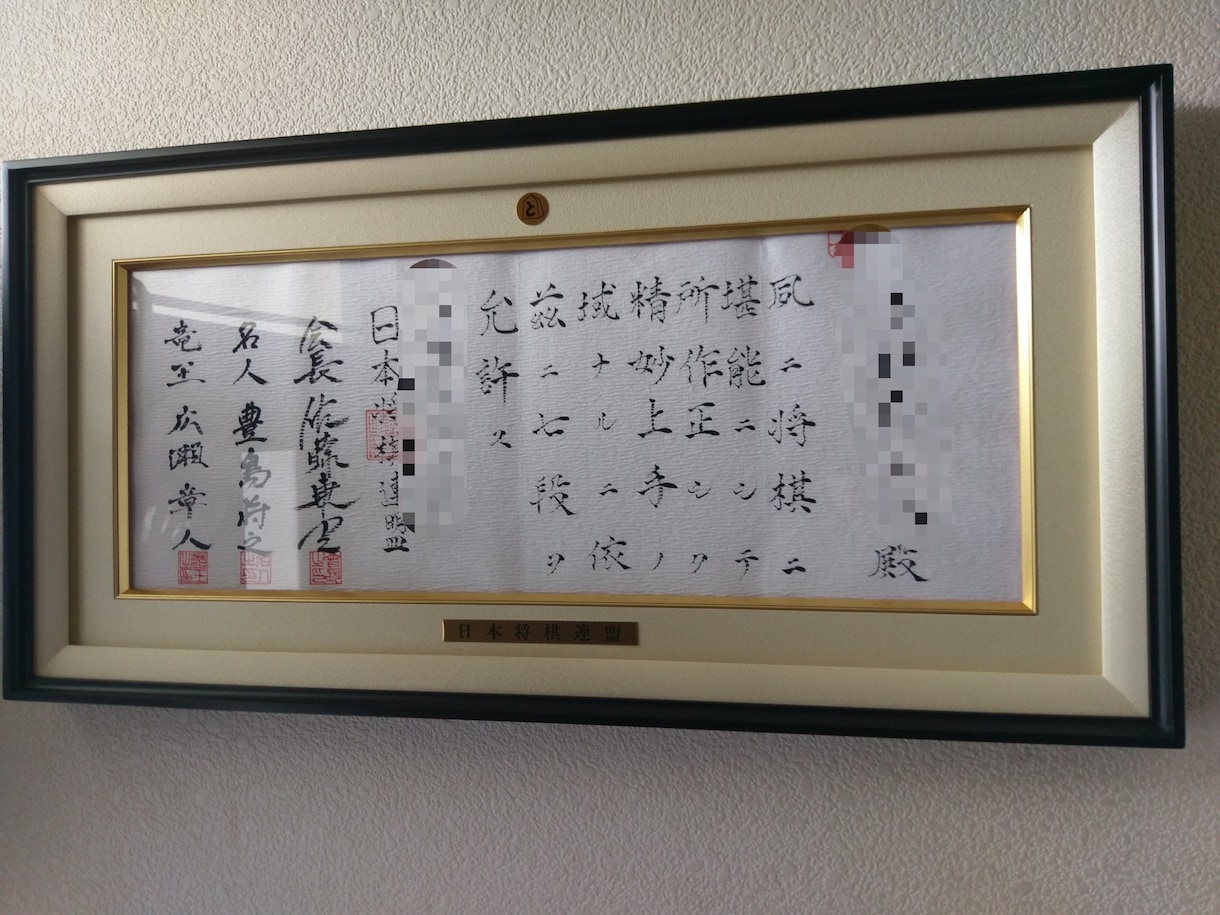 殿
夙ニ将棋ニ
堪能ニシテ
所作正シク
精妙上手ノ
域ナルニ依
茲ニ七段ヲ
允許ス
日本将棋連盟
会長 佐藤康光
名人 豊島将之
竜王 広瀬章人
と
日本将棋連盟